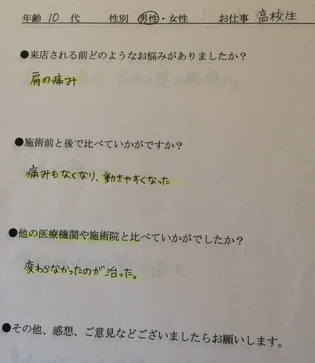 年齢 10 代 性別 男性・女性 お仕事 高校生
●来店される前どのようなお悩みがありましたか?
肩の痛み
●施術前と後で比べていかがですか?
痛みもなくなり、動きやすくなった
●他の医療機関や施術院と比べていかがでしたか?
変わらなかったのが治った。
●その他、感想、ご意見などございましたらお願いします。